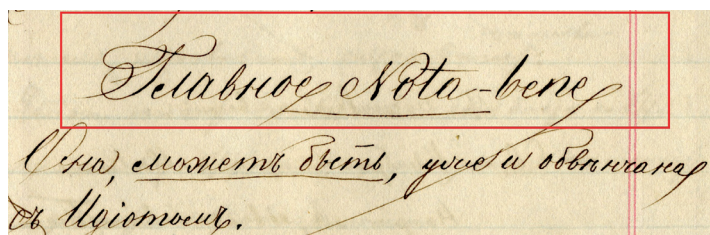 Главное Nota-bene
Она, можетъ быть, уже и обвѣнчана
съ Идіотомъ.